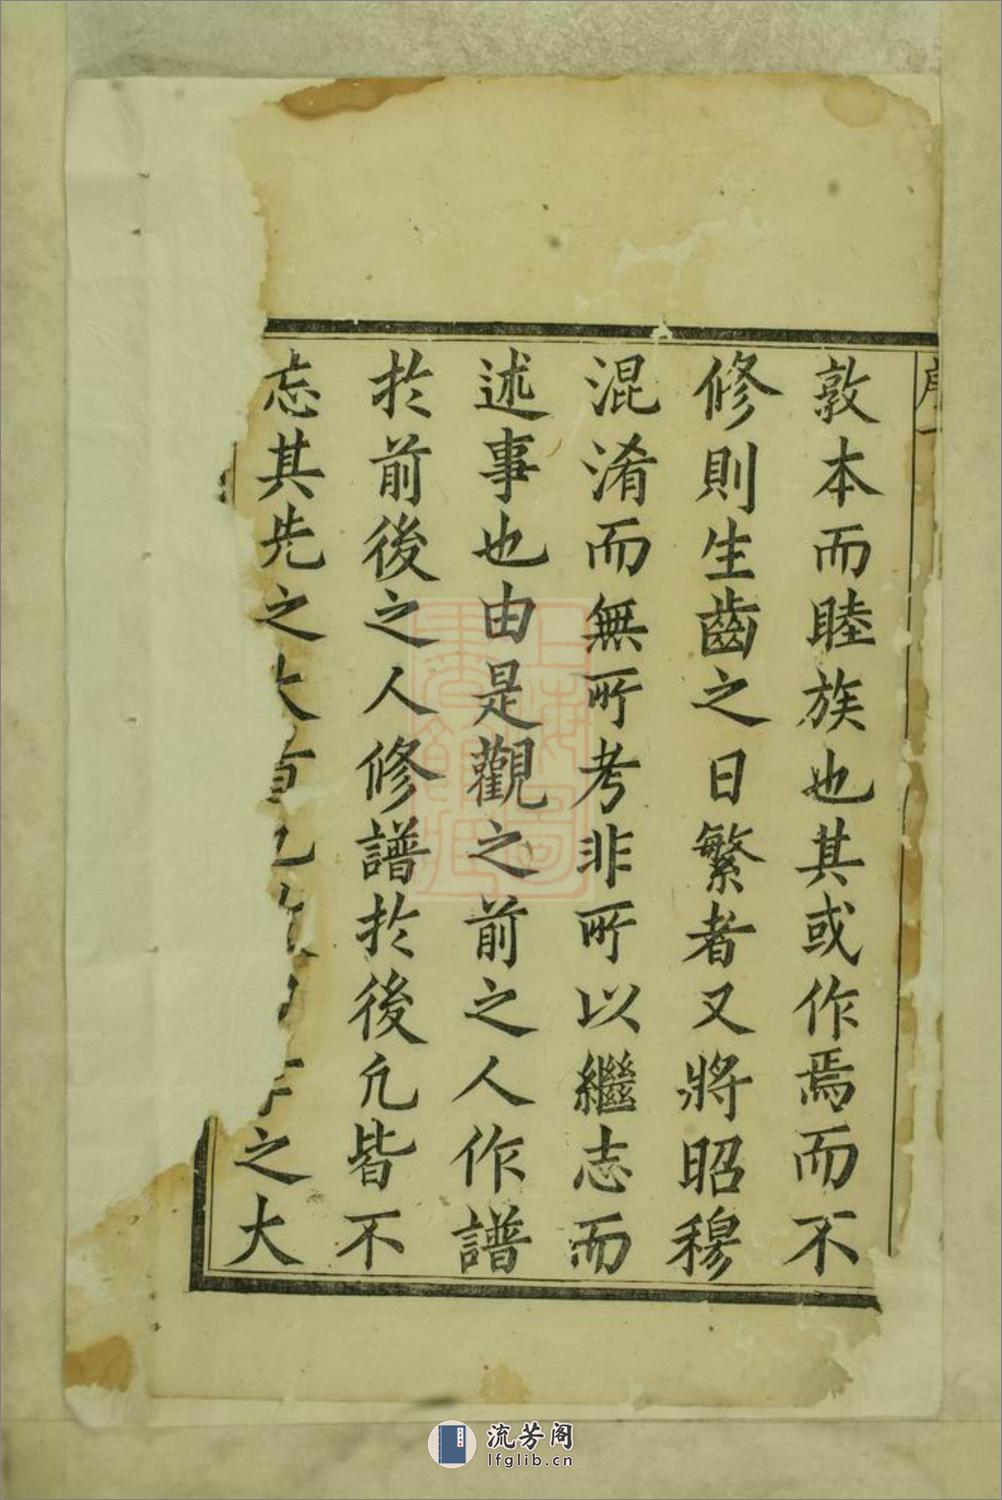 序一
敦本而睦族也其或作焉而不
修則生齒之日繁者又將昭穆
混淆而無所考非所以繼志而
述事也由是觀之前之人作譜
於前後之人修譜於後凢皆不
忘其先之大
之大
流芳阁
lfglib.cn